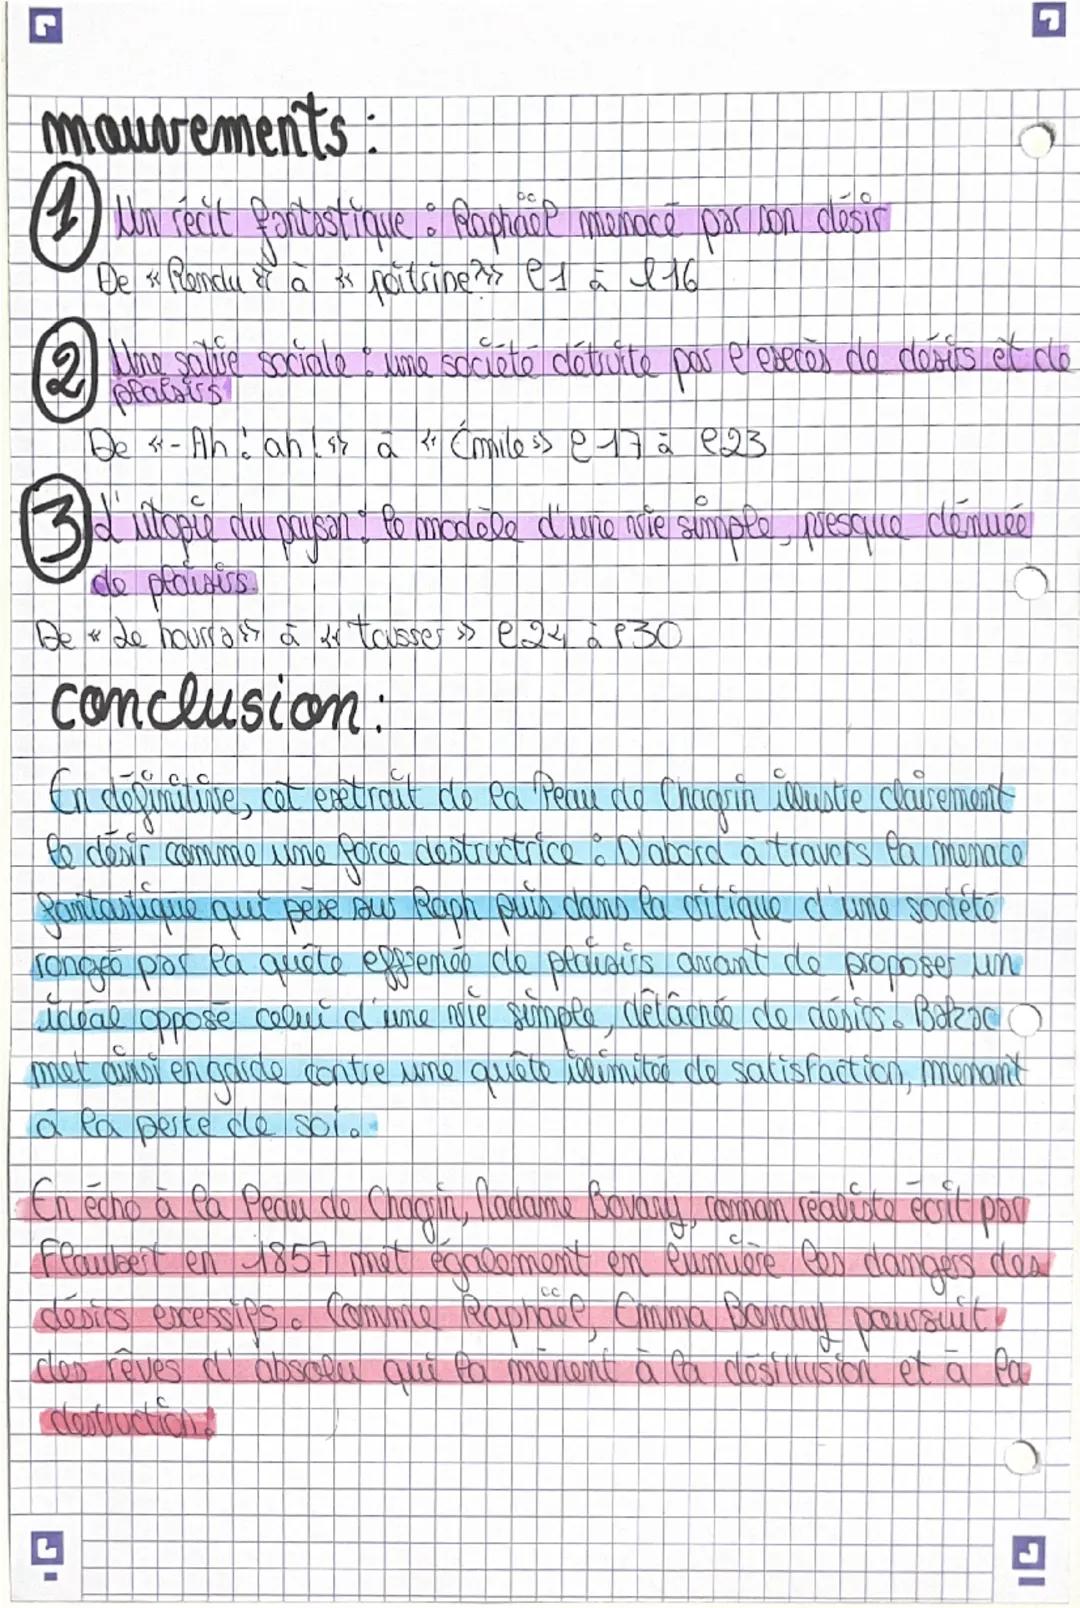 mouvements :
1 Un récit fantastique : Raphaël menacé par son désir
De « Rendu » à « poitrine? » l1 à l16
2 Une satire sociale : une société détruite par l'excès de désirs et de
plaisirs
De «- Ah ! ah ! » à « Émile » l17 à l23
3 L'utopie du paysan : le modèle d'une vie simple, presque dénuée
de plaisirs.
De « Le hourra » à « tousser » l24 à l30
conclusion :
En définitive, cet extrait de la Peau de Chagrin illustre clairement
le désir comme une force destructrice : D'abord à travers la menace
fantastique qui pèse sur Raph puis dans la critique d'une société
rongée par la quête effrenée de plaisirs avant de proposer un
idéal opposé celui d'une vie simple, détâchée de désirs. Balzac
met ainsi en garde contre une quête illimitée de satisfaction, menant
à la perte de soi.
En écho à la Peau de Chagrin, Madame Bovary, roman réaliste écrit par
Flaubert en 1857 met également en lumière les dangers des
désirs excessifs. Comme Raphaël, Emma Bovary poursuit
des rêves d'absolu qui la mènent à la désillusion et à la
destruction.